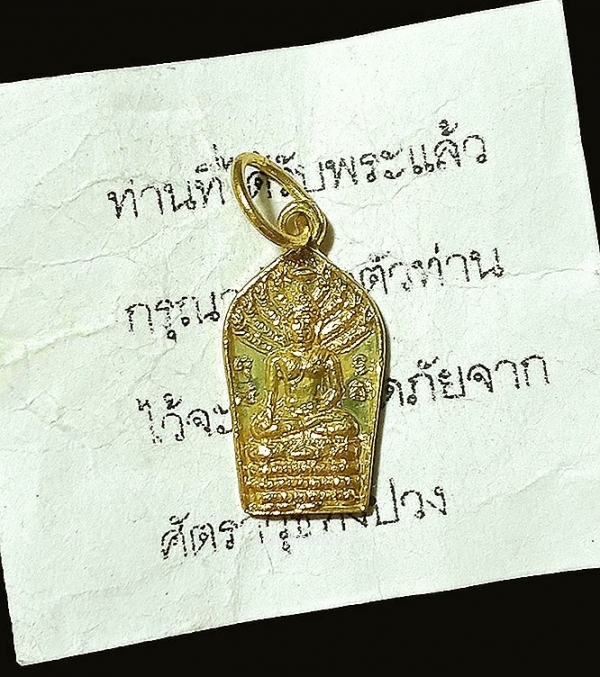 ท่านที่ได้รับพระแล้ว
กรุณา ตัวท่าน
ไว้จะ ภัยจาก
ศัตรา ปวง